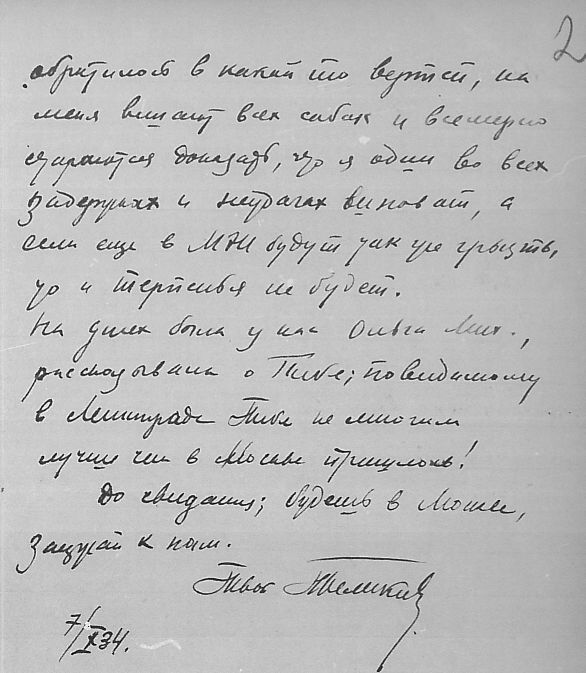 2
обратилось в какой то вертеп, на
меня вешают всех собак и всемерно
стараются доказать, что я один во всех
задержках и неудачах виноват, а
если еще в МЭИ будут так же грызть,
то и терпенья не будет.
На днях была у нас Ольга Мих.,
рассказывала о Тебе; повидимому
в Ленинграде Тебе не многим
лучше чем в Москве пришлось!
До свидания; будешь в Москве,
заезжай к нам.
Твой
7/X 34.